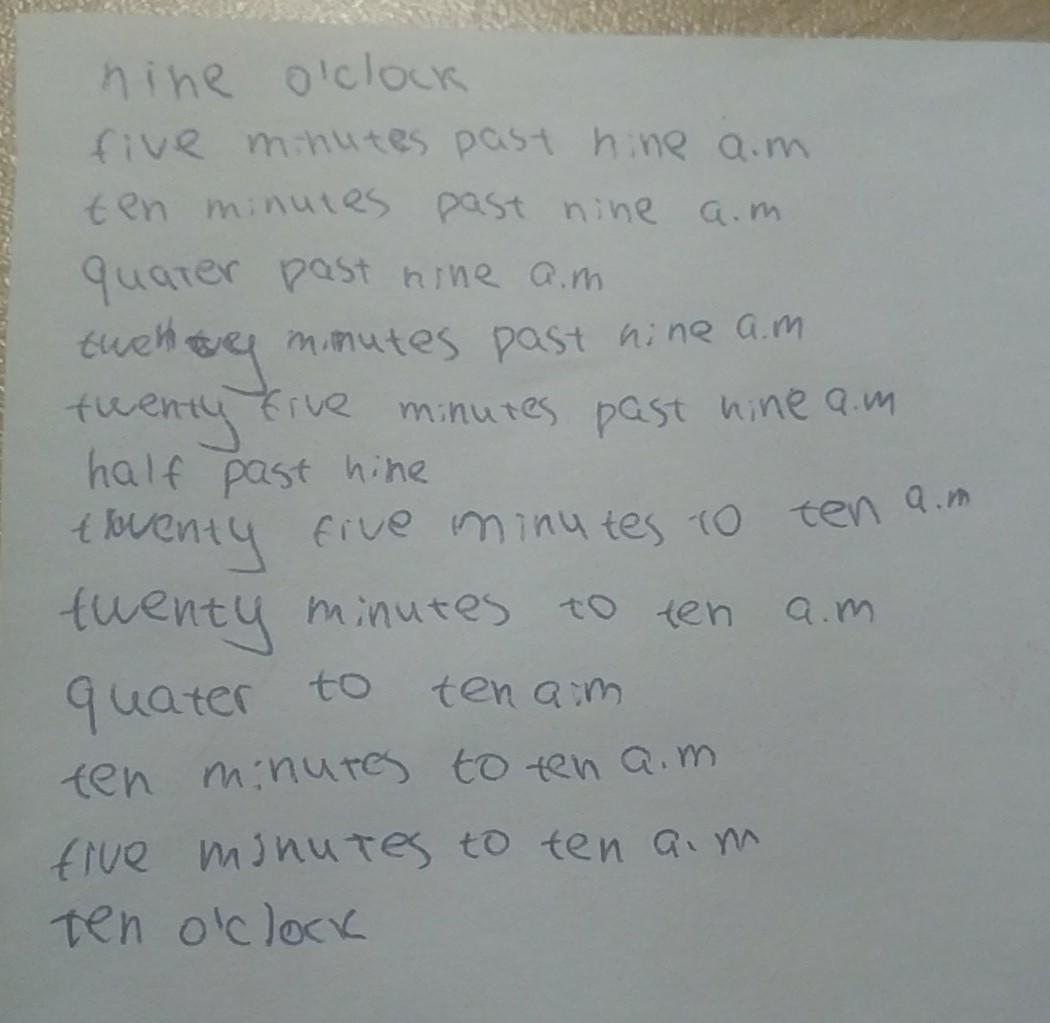 nine o'clock
five minutes past nine a.m
ten minutes past nine a.m
quater past nine a.m
twenty minutes past nine a.m
twenty five minutes past nine a.m
half past nine
twenty five minutes to ten a.m
twenty minutes to ten a.m
quater to ten a.m
ten minutes to ten a.m
five minutes to ten a.m
ten o'clock